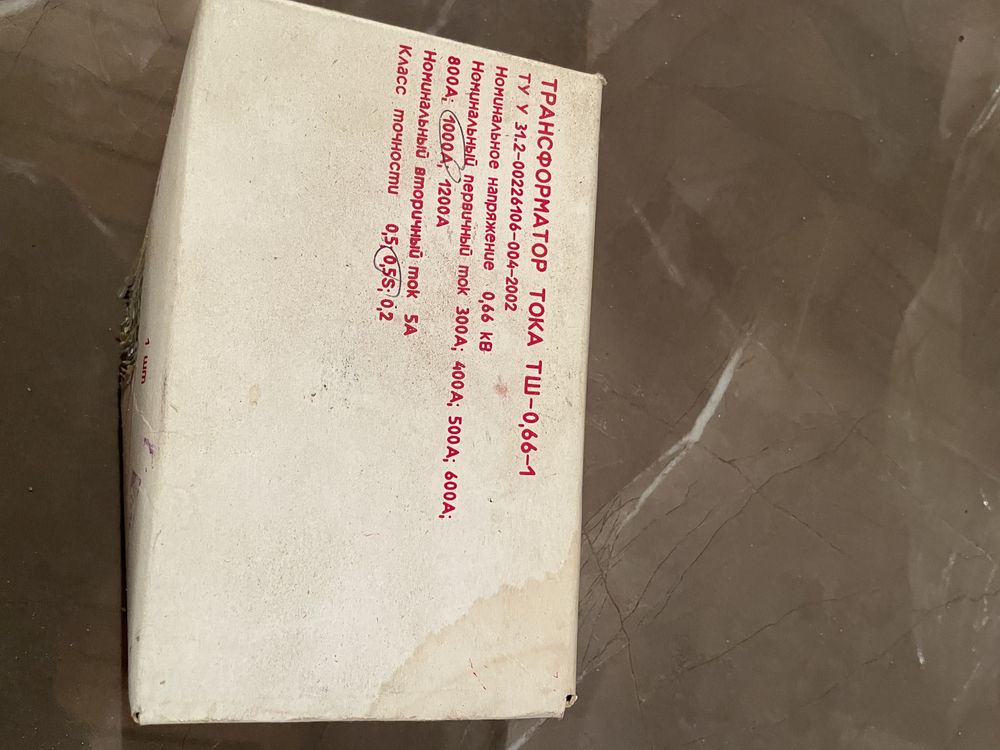 ТРАНСФОРМАТОР ТОКА ТШ-0,66-1
ТУ У 31.2-00226106-004-2002
Номинальное напряжение 0,66 кВ
Номинальный первичный ток 300А; 400А; 500А; 600А;
800А; 1000А; 1200А
Номинальный вторичный ток 5А
Класс точности 0,5; 0,5S; 0,2
1 шт